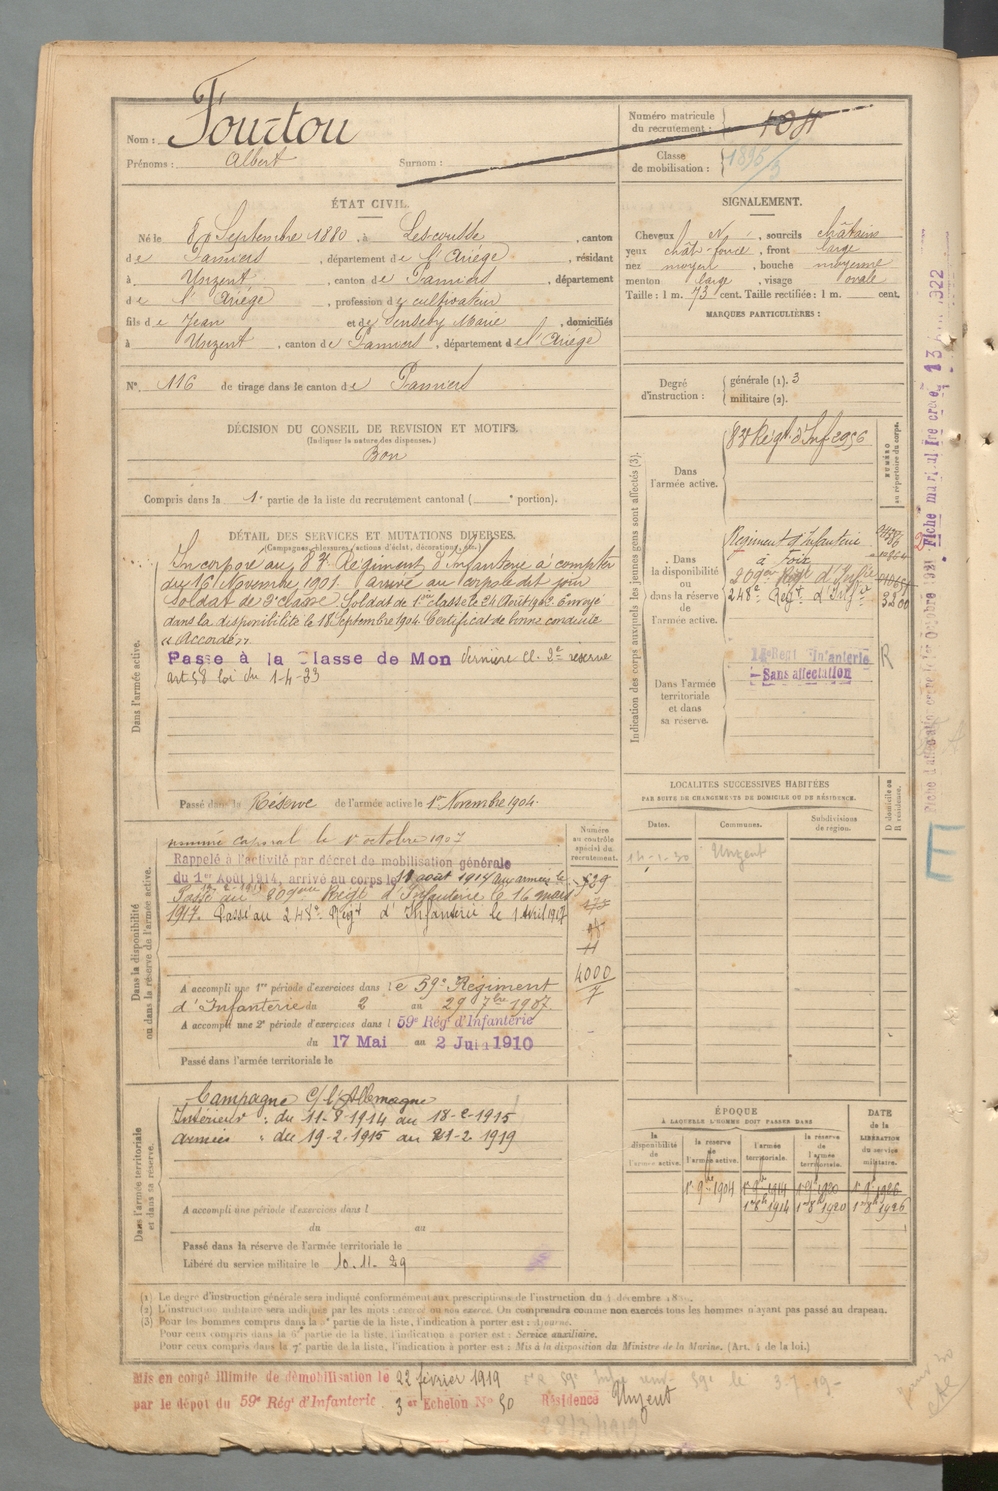 Nom : Fourtou
Prénoms : Albert Surnom :
Numéro matricule
du recrutement : 1041
Classe
de mobilisation : 1896/3
ÉTAT CIVIL.
Né le 8 Septembre 1880, à Lescousse, canton
de Pamiers, département de l'Ariège, résidant
à Unzent, canton de Pamiers, département
de l'Ariège, profession de cultivateur
fils de Jean et de Marie, domiciliés
à Unzent, canton de Pamiers, département de l'Ariège
N° 116 de tirage dans le canton de Pamiers
DÉCISION DU CONSEIL DE REVISION ET MOTIFS.
(Indiquer la nature des dispenses.)
Bon
Compris dans la 1e partie de la liste du recrutement cantonal ( e portion).
SIGNALEMENT.
Cheveux , sourcils châtains
yeux chât-foncé, front large
nez moyen, bouche moyenne
menton large, visage ovale
Taille : 1 m. 73 cent. Taille rectifiée : 1 m. cent.
MARQUES PARTICULIÈRES :
Degré
d'instruction :
générale (1). 3
militaire (2).
DÉTAIL DES SERVICES ET MUTATIONS DIVERSES.
(Campagnes, blessures, actions d'éclat, décorations, etc.)
Dans l'armée active.
Incorporé au 87 Régiment d'infanterie à compter
du 16 Novembre 1901. arrivé au corps le dit jour
soldat de 2e classe. Soldat de 1ère classe le 24 Août 1903. Envoyé
dans la disponibilité le 18 Septembre 1904. Certificat de bonne conduite
"Accordé"
Passé à la Classe de Mon dernière cl. 2e réserve
art 58 loi du 1-4-23
Passé dans la Réserve de l'armée active le 1er Novembre 1904.
Indication des corps auxquels les jeunes gens sont affectés (3).
NUMÉRO
au répertoire du corps.
Dans
l'armée active.
87 Régt d'Inf 2956
Dans
la disponibilité
ou
dans la réserve
de
l'armée active.
Régiment d'Infanterie
à Foix
209e Régt d'Infie
248e Régt d'Infie 3200
Dans l'armée
territoriale
et dans
sa réserve.
Régt Infanterie
Sans affectation R
LOCALITÉS SUCCESSIVES HABITÉES
PAR SUITE DE CHANGEMENTS DE DOMICILE OU DE RÉSIDENCE.
D domicile ou
R résidence.
Dates. Communes. Subdivisions
de région.
14-1-30 Unzent
Dans la disponibilité
ou dans la réserve de l'armée active.
Numéro
au contrôle
spécial du
recrutement.
nommé caporal le 1er octobre 1907
Rappelé à l'activité par décret de mobilisation générale
du 1er Août 1914, arrivé au corps le 11 août 1914 aux armées le
Passé au 209eme Régt d'Infanterie le 16 mars
1917. Passé au 248e Régt d'Infanterie le 1 Avril 1917
4000
7
A accompli une 1re période d'exercices dans le 59e Régiment
d'Infanterie du 2 au 29 7bre 1907.
A accompli une 2e période d'exercices dans l 59e Rég' d'Infanterie
du 17 Mai au 2 Juin 1910
Passé dans l'armée territoriale le
Dans l'armée territoriale
et dans sa réserve.
Campagne c/ l'Allemagne
Intérieur : du 11-8-1914 au 18-2-1915
Armées " du 19-2-1915 au 21-2-1919
A accompli une période d'exercices dans l
du au
Passé dans la réserve de l'armée territoriale le
Libéré du service militaire le 10.11.29
ÉPOQUE
À LAQUELLE L'HOMME DOIT PASSER DANS
DATE
de la
LIBÉRATION
du service
militaire.
la
disponibilité
de
l'armée active.
la réserve
de
l'armée active.
l'armée
territoriale.
la réserve
de
l'armée
territoriale.
1er 9bre 1904 1er 9b 1914 1er 9b 1920 1er 9b 1926
1er 8b 1914 1er 8b 1920 1er 8b 1926
(1) Le degré d'instruction générale sera indiqué conformément aux prescriptions de l'instruction du décembre
(2) L'instruction militaire sera indiquée par les mots : exercé ou non exercé. On comprendra comme non exercés tous les hommes n'ayant pas passé au drapeau.
(3) Pour les hommes compris dans la 5e partie de la liste, l'indication à porter est : Ajourné.
Pour ceux compris dans la 6e partie de la liste, l'indication à porter est : Service auxiliaire.
Pour ceux compris dans la 7e partie de la liste, l'indication à porter est : Mis à la disposition du Ministre de la Marine. (Art. 4 de la loi.)
Mis en congé illimité de démobilisation le 22 février 1919
par le dépôt du 59e Rég' d'Infanterie 3er Echelon N° 50 Résidence Unzent
28/3/1919